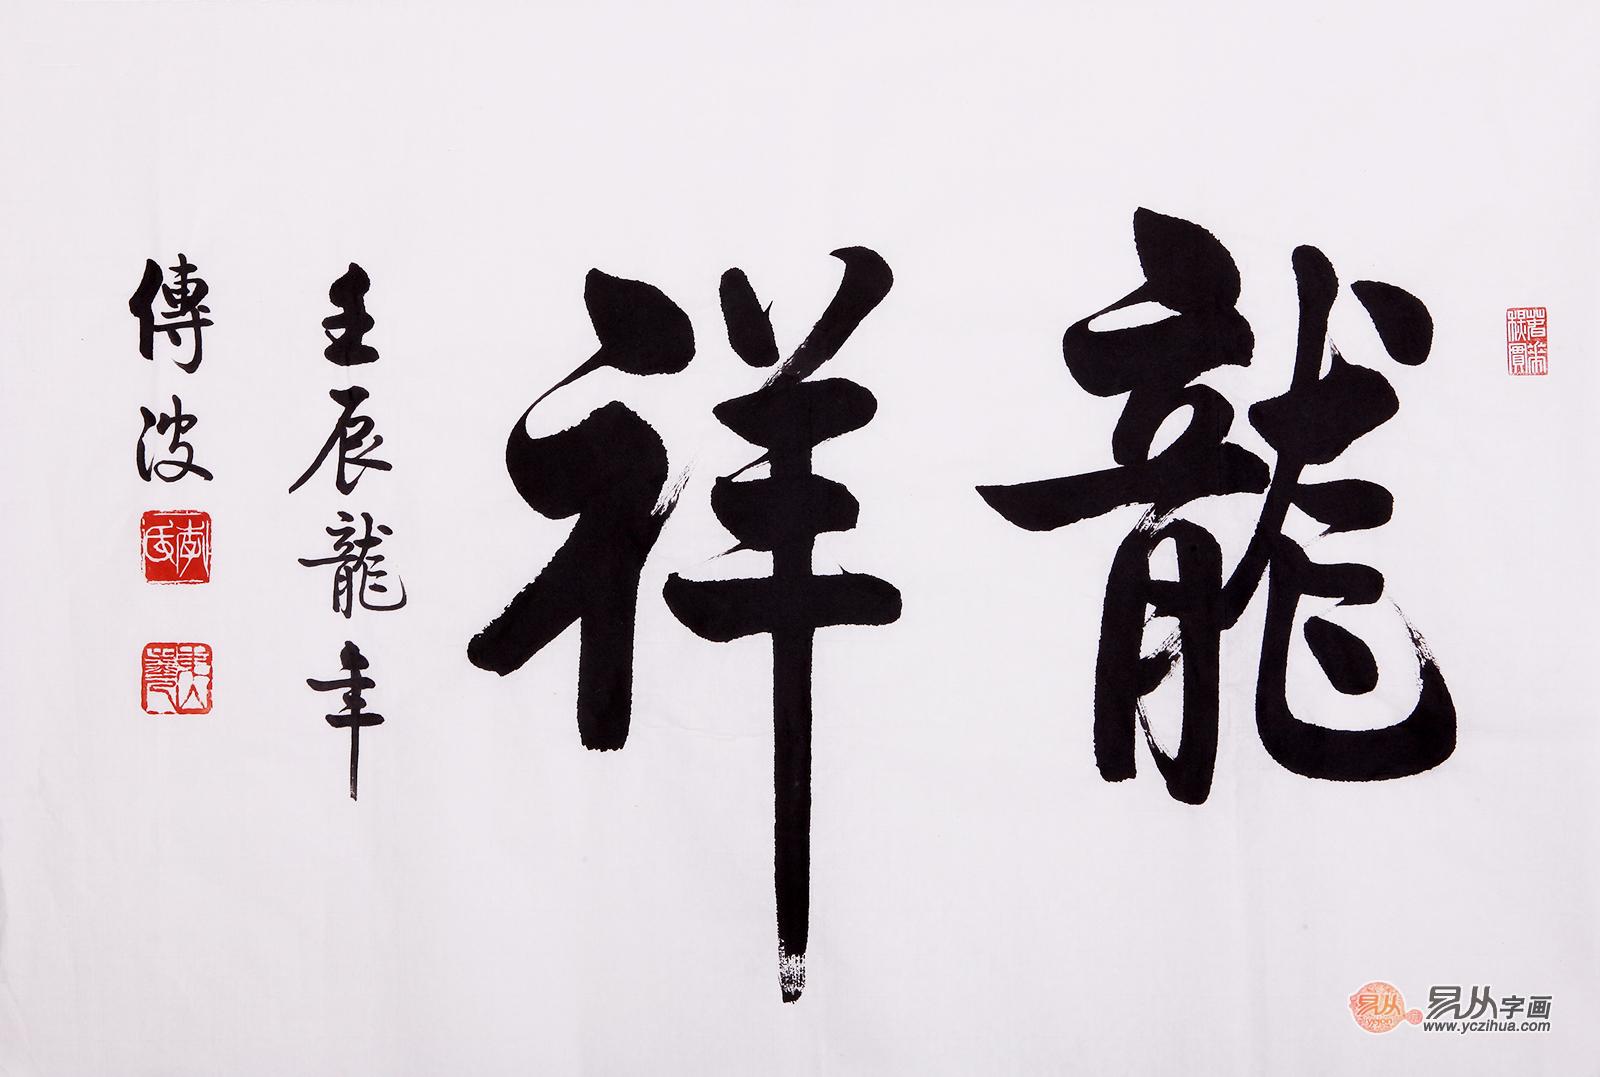 龍祥
壬辰龍年
傳波
李氏
易从
yigon
易从字画
www.yczihua.com